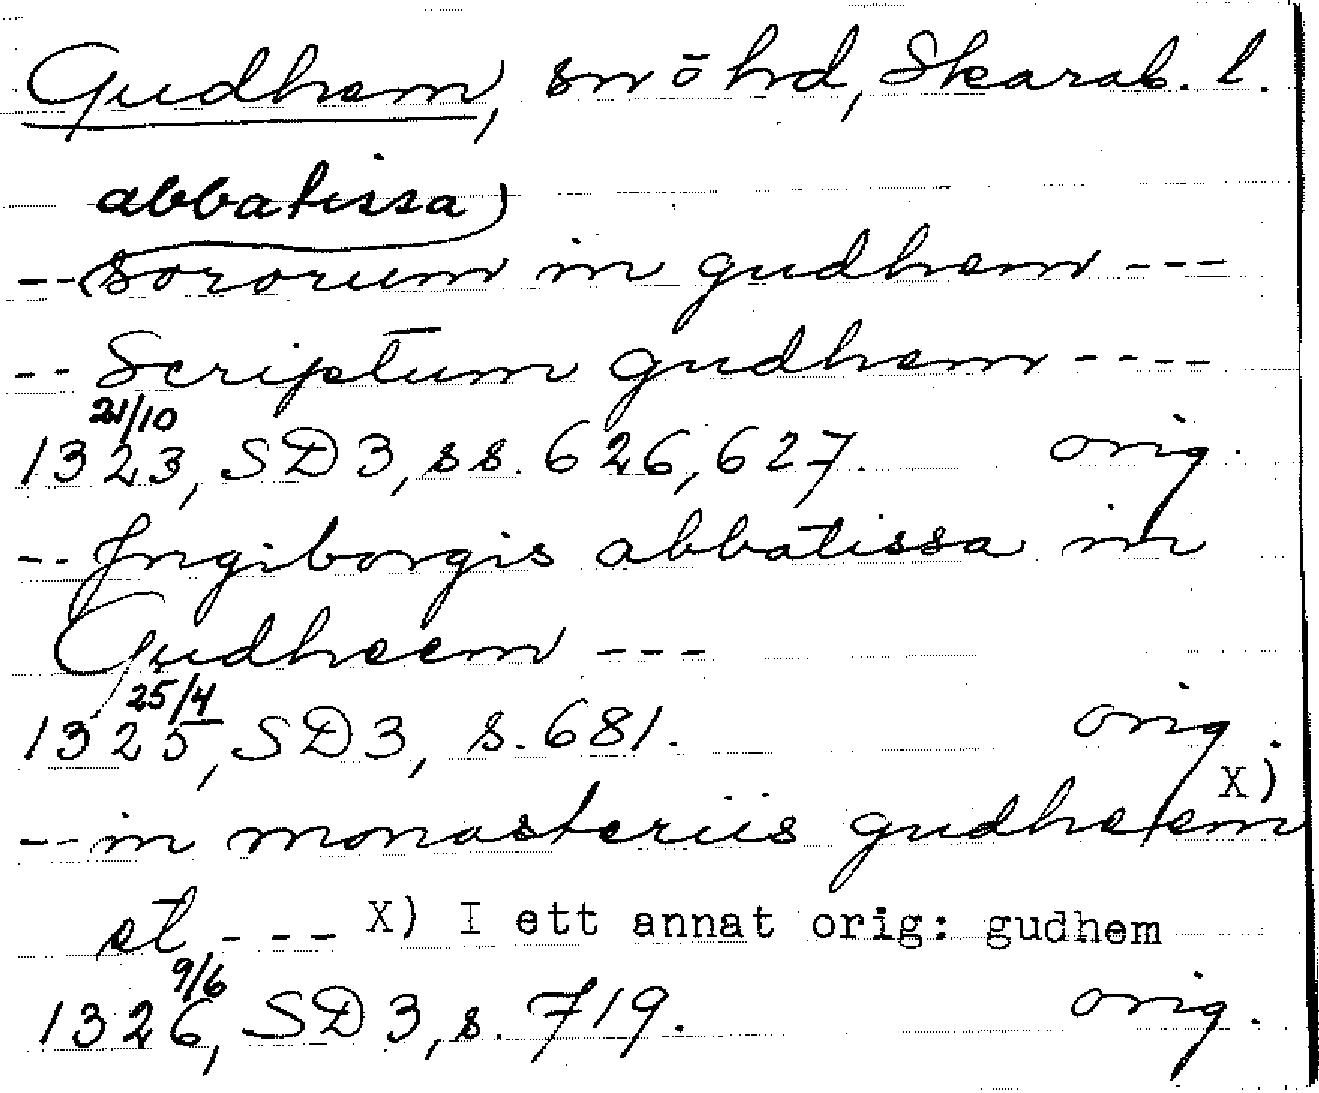 Gudhem, sn o hd, Skarab. l.
abbatissa
-- sororum in gudhem ---
-- Scriptum gudhem ----
21/10
1323, SD3, ss. 626, 627. orig.
-- Ingiborgis abbatissa in
Gudheem ---
25/4
1325, SD3, s. 681. orig.
X)
-- in monasteriis gudheem
et --- X) I ett annat orig: gudhem
9/6
1326, SD3, s. 719. orig.